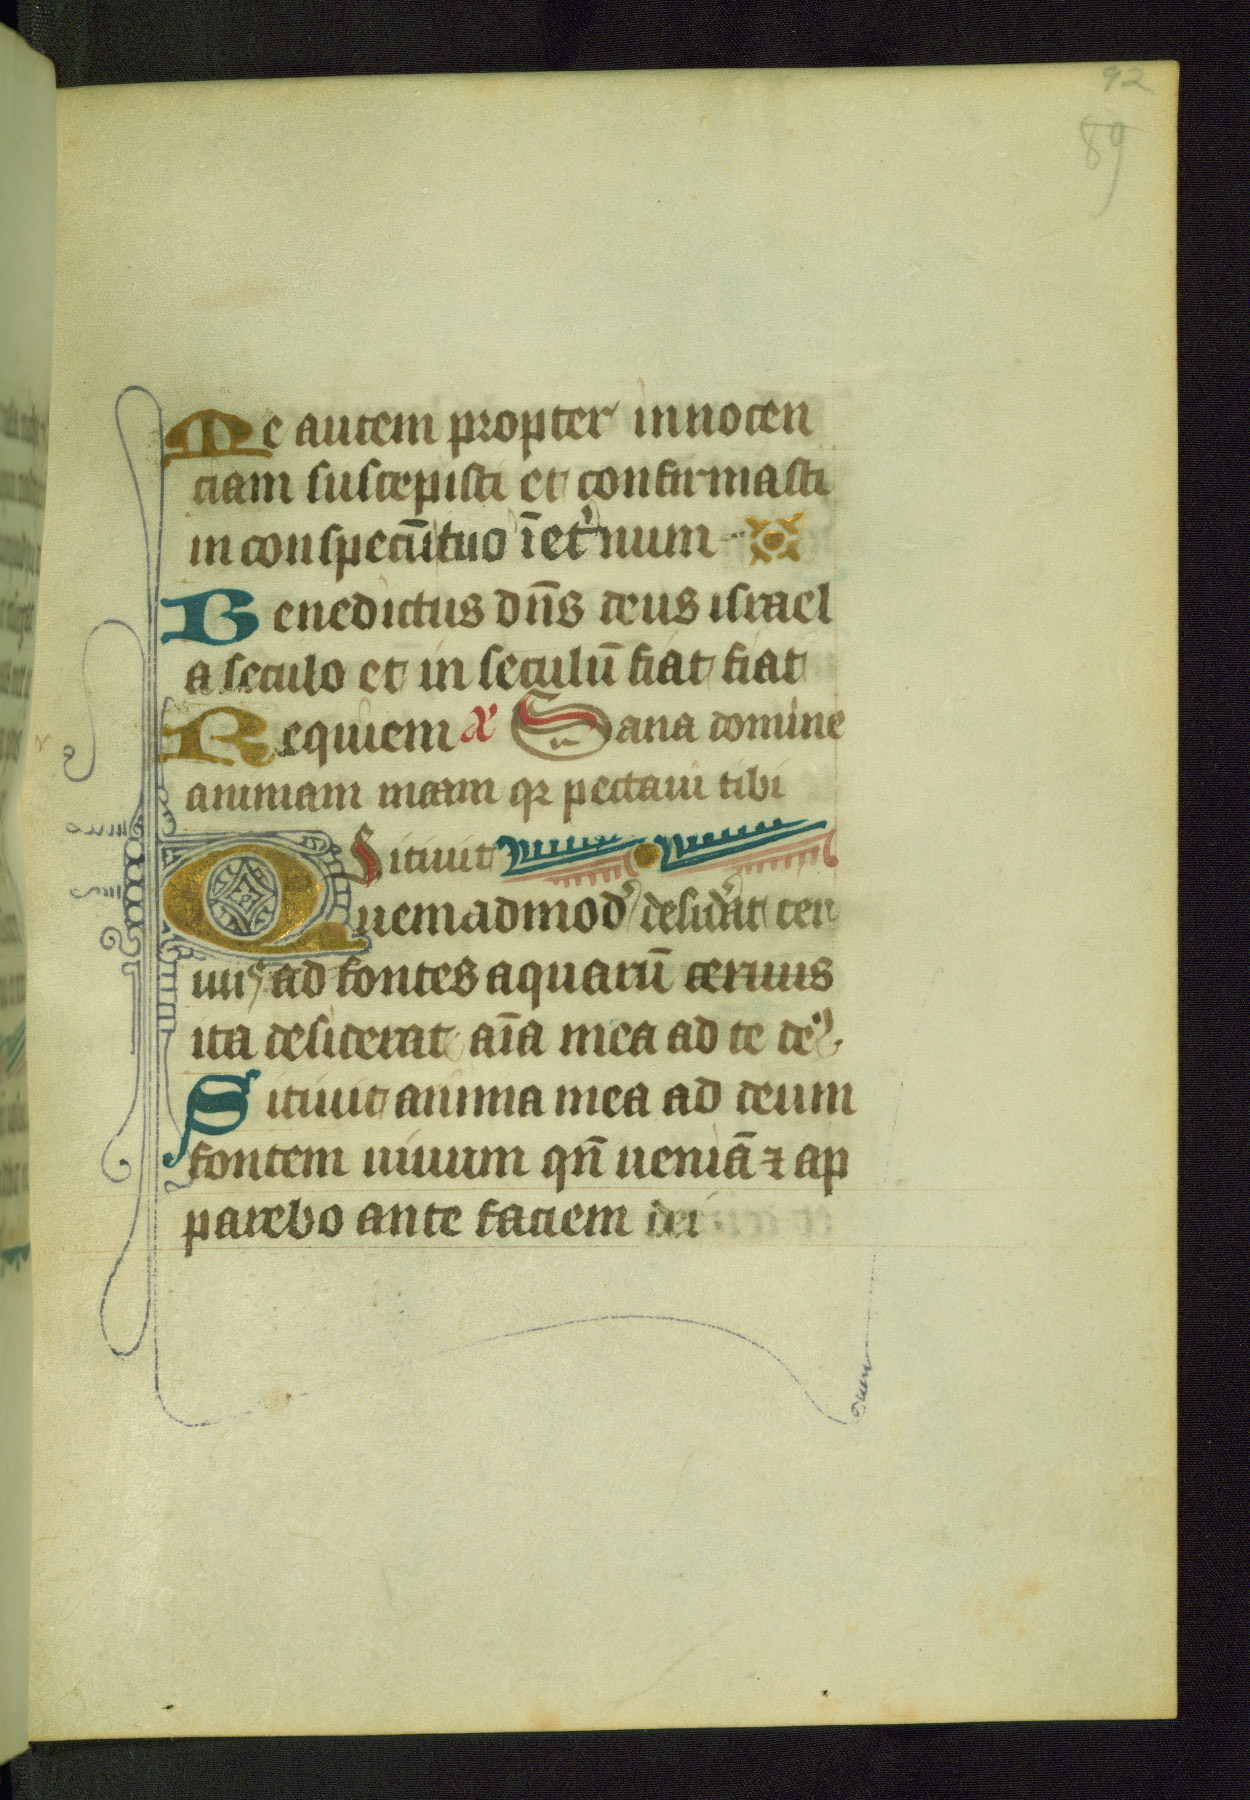 92
89
Me autem propter innocen
ciam suscepisti et confirmasti
in conspectū tuo īet'num
Benedictus dn̄s deus israel
a seculo et in seculū fiat fiat
Requiem Sana domine
animam meam qz peccaui tibi
Sitiuit
Quemadmod' desid'at cer
uus ad fontes aquarū ceruus
ita desiderat aīa mea ad te de'
Sitiuit anima mea ad deum
fontem uiuum qn̄ ueniā ⁊ ap
parebo ante faciem dei